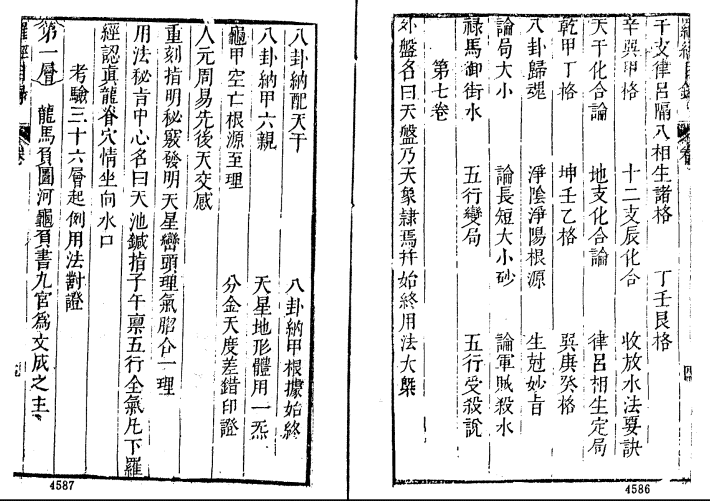 干支律呂隔八相生諸格　丁壬艮格
辛巽甲格　十二支辰化合　收放水法要訣
天干化合論　地支化合論　律呂相生定局
乾甲丁格　坤壬乙格　巽庚癸格
八卦歸魂　淨陰淨陽根源　生尅妙旨
論局大小　論長短大小砂　論軍賊殺水
祿馬御街水　五行變局　五行受殺說
第七卷
外盤名曰天盤乃天象隷焉并始終用法大槩
4586
八卦納配天干　八卦納甲根據始終
八卦納甲六親　天星地形體用一炁
龜甲空亡根源至理　分金天度差錯印證
人元周易先後天交感
重刻指明秘竅發明天星巒頭理氣脗合一理
用法秘旨中心名曰天池鍼指子午禀五行全氣凡下羅
經認眞龍脊穴情坐向水口
考驗三十六層起例用法對證
第一層　龍馬負圖河龜負書九宮爲文成之主
4587